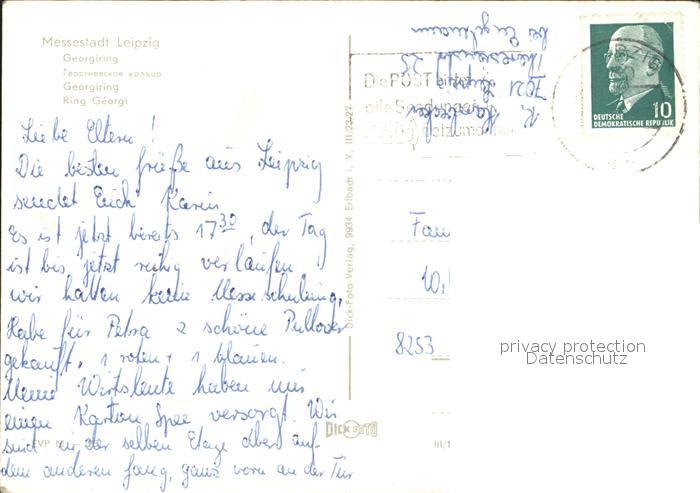 Messestadt Leipzig
Georgiring
Георгиевское кольцо
Georgiring
Ring Géorgi
Liebe Eltern!
Die besten Grüße aus Leipzig
sendet Euch Karin
Es ist jetzt bereits 17 30, der Tag
ist bis jetzt ruhig verlaufen
wir hatten keine Messeschulung,
Habe für Petra 2 schöne Pullover
gekauft, 1 roten + 1 blauen.
Meine Wirtsleute haben mir
einen Karton Spee versorgt. Wir
sind in der selben Etage aber auf
dem anderen Gang, ganz vorn an der Tür
EVP
Dick-Foto-Verlag, 9934 Erlbach i. V. III/22/27
DICK FOTO
III/1
K.
7021 Leipzig
25
bei Engelmann
Die POST bittet
alle Sendungen
DEUTSCHE
DEMOKRATISCHE REPUBLIK
10
Fam
10,
8253
privacy protection
Datenschutz